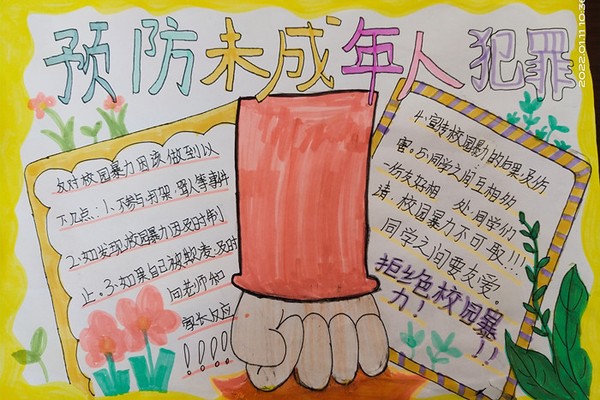 预防未成年人犯罪
2022.01.11 10:36
反对校园暴力因该做到以
下几点:1、不参与打架、骂人等事件
2、如发现校园暴力因及时制
止。3、如果自己被欺凌、及时
向老师和
家长反应
!!!!!
4、宣传校园暴力的后果及伤
害。5、同学之间互相的
一份友好相 处、同学们
请,校园暴力不可取!!!
同学之间要友爱。
拒绝校园暴
力!!!